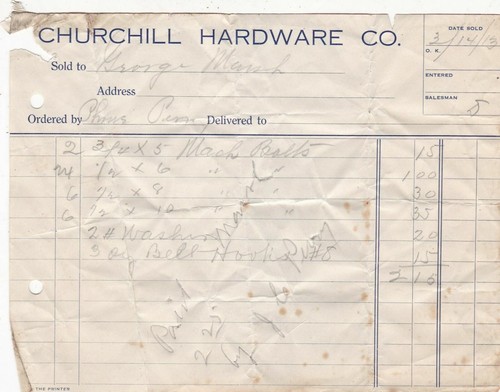 CHURCHILL HARDWARE CO.
DATE SOLD
3/14/13
O. K.
Sold to George Marsh
ENTERED
Address
SALESMAN
5
Ordered by Phone Delivered to
2 3/4 x 5 Mach Bolts 15
24 1/2 x 6 " " 1 00
6 1/2 x 8 " " 30
6 1/2 x 10 " " 35
2 # Washers 20
3 Belt Hooks 15
2 15
Paid
by
THE PRINTER